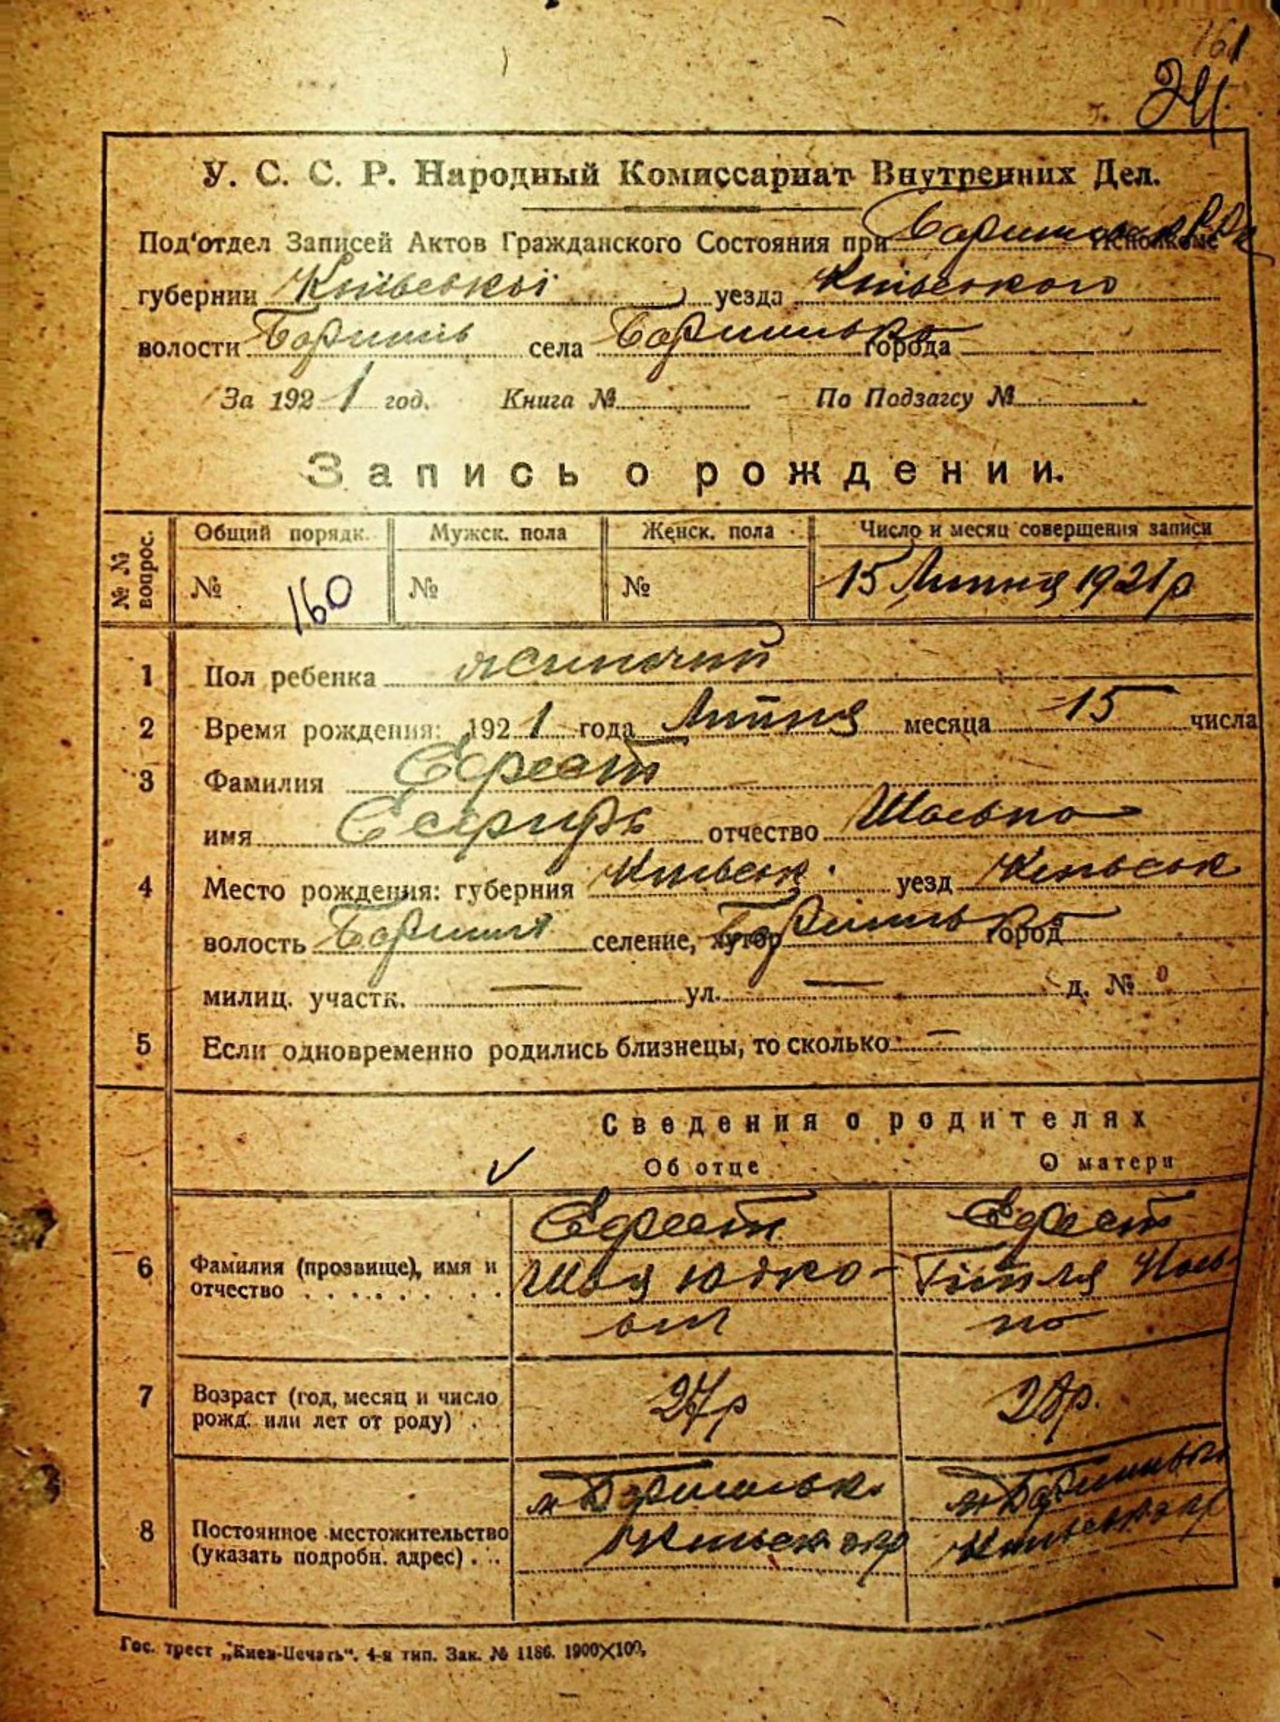 24
У. С. С. Р. Народный Комиссариат Внутренних Дел.
Под'отдел Записей Актов Гражданского Состояния при Исполкоме
губернии Київської уезда Київського
волости Баришів села города
За 1921 год. Книга № По Подзагсу №
Запись о рождении.
№№ вопрос. Общий порядк. Мужск. пола Женск. пола Число и месяц совершения записи
№ 160 № № 15 Липня 1921 р
1 Пол ребенка жіночий
2 Время рождения: 1921 года Липня месяца 15 числа
3 Фамилия Ефест
имя Есфирь отчество
4 Место рождения: губерния Київськ. уезд Київськ
волость селение, хутор город
милиц. участк. — ул. — д. № 0
5 Если одновременно родились близнецы, то сколько: —
Сведения о родителях
Об отце О матери
6 Фамилия (прозвище), имя и отчество Ефест Ефест
Юдко-
вич
7 Возраст (год, месяц и число рожд. или лет от роду) 27р 28р.
8 Постоянное местожительство (указать подробн. адрес)
Київськ окр Київськ окр
Гос. трест „Киев-Печать". 4-я тип. Зак. № 1186. 1900×100,